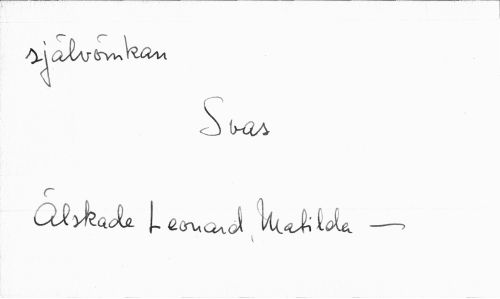 självömkan
Svas
Älskade Leonard, Matilda —